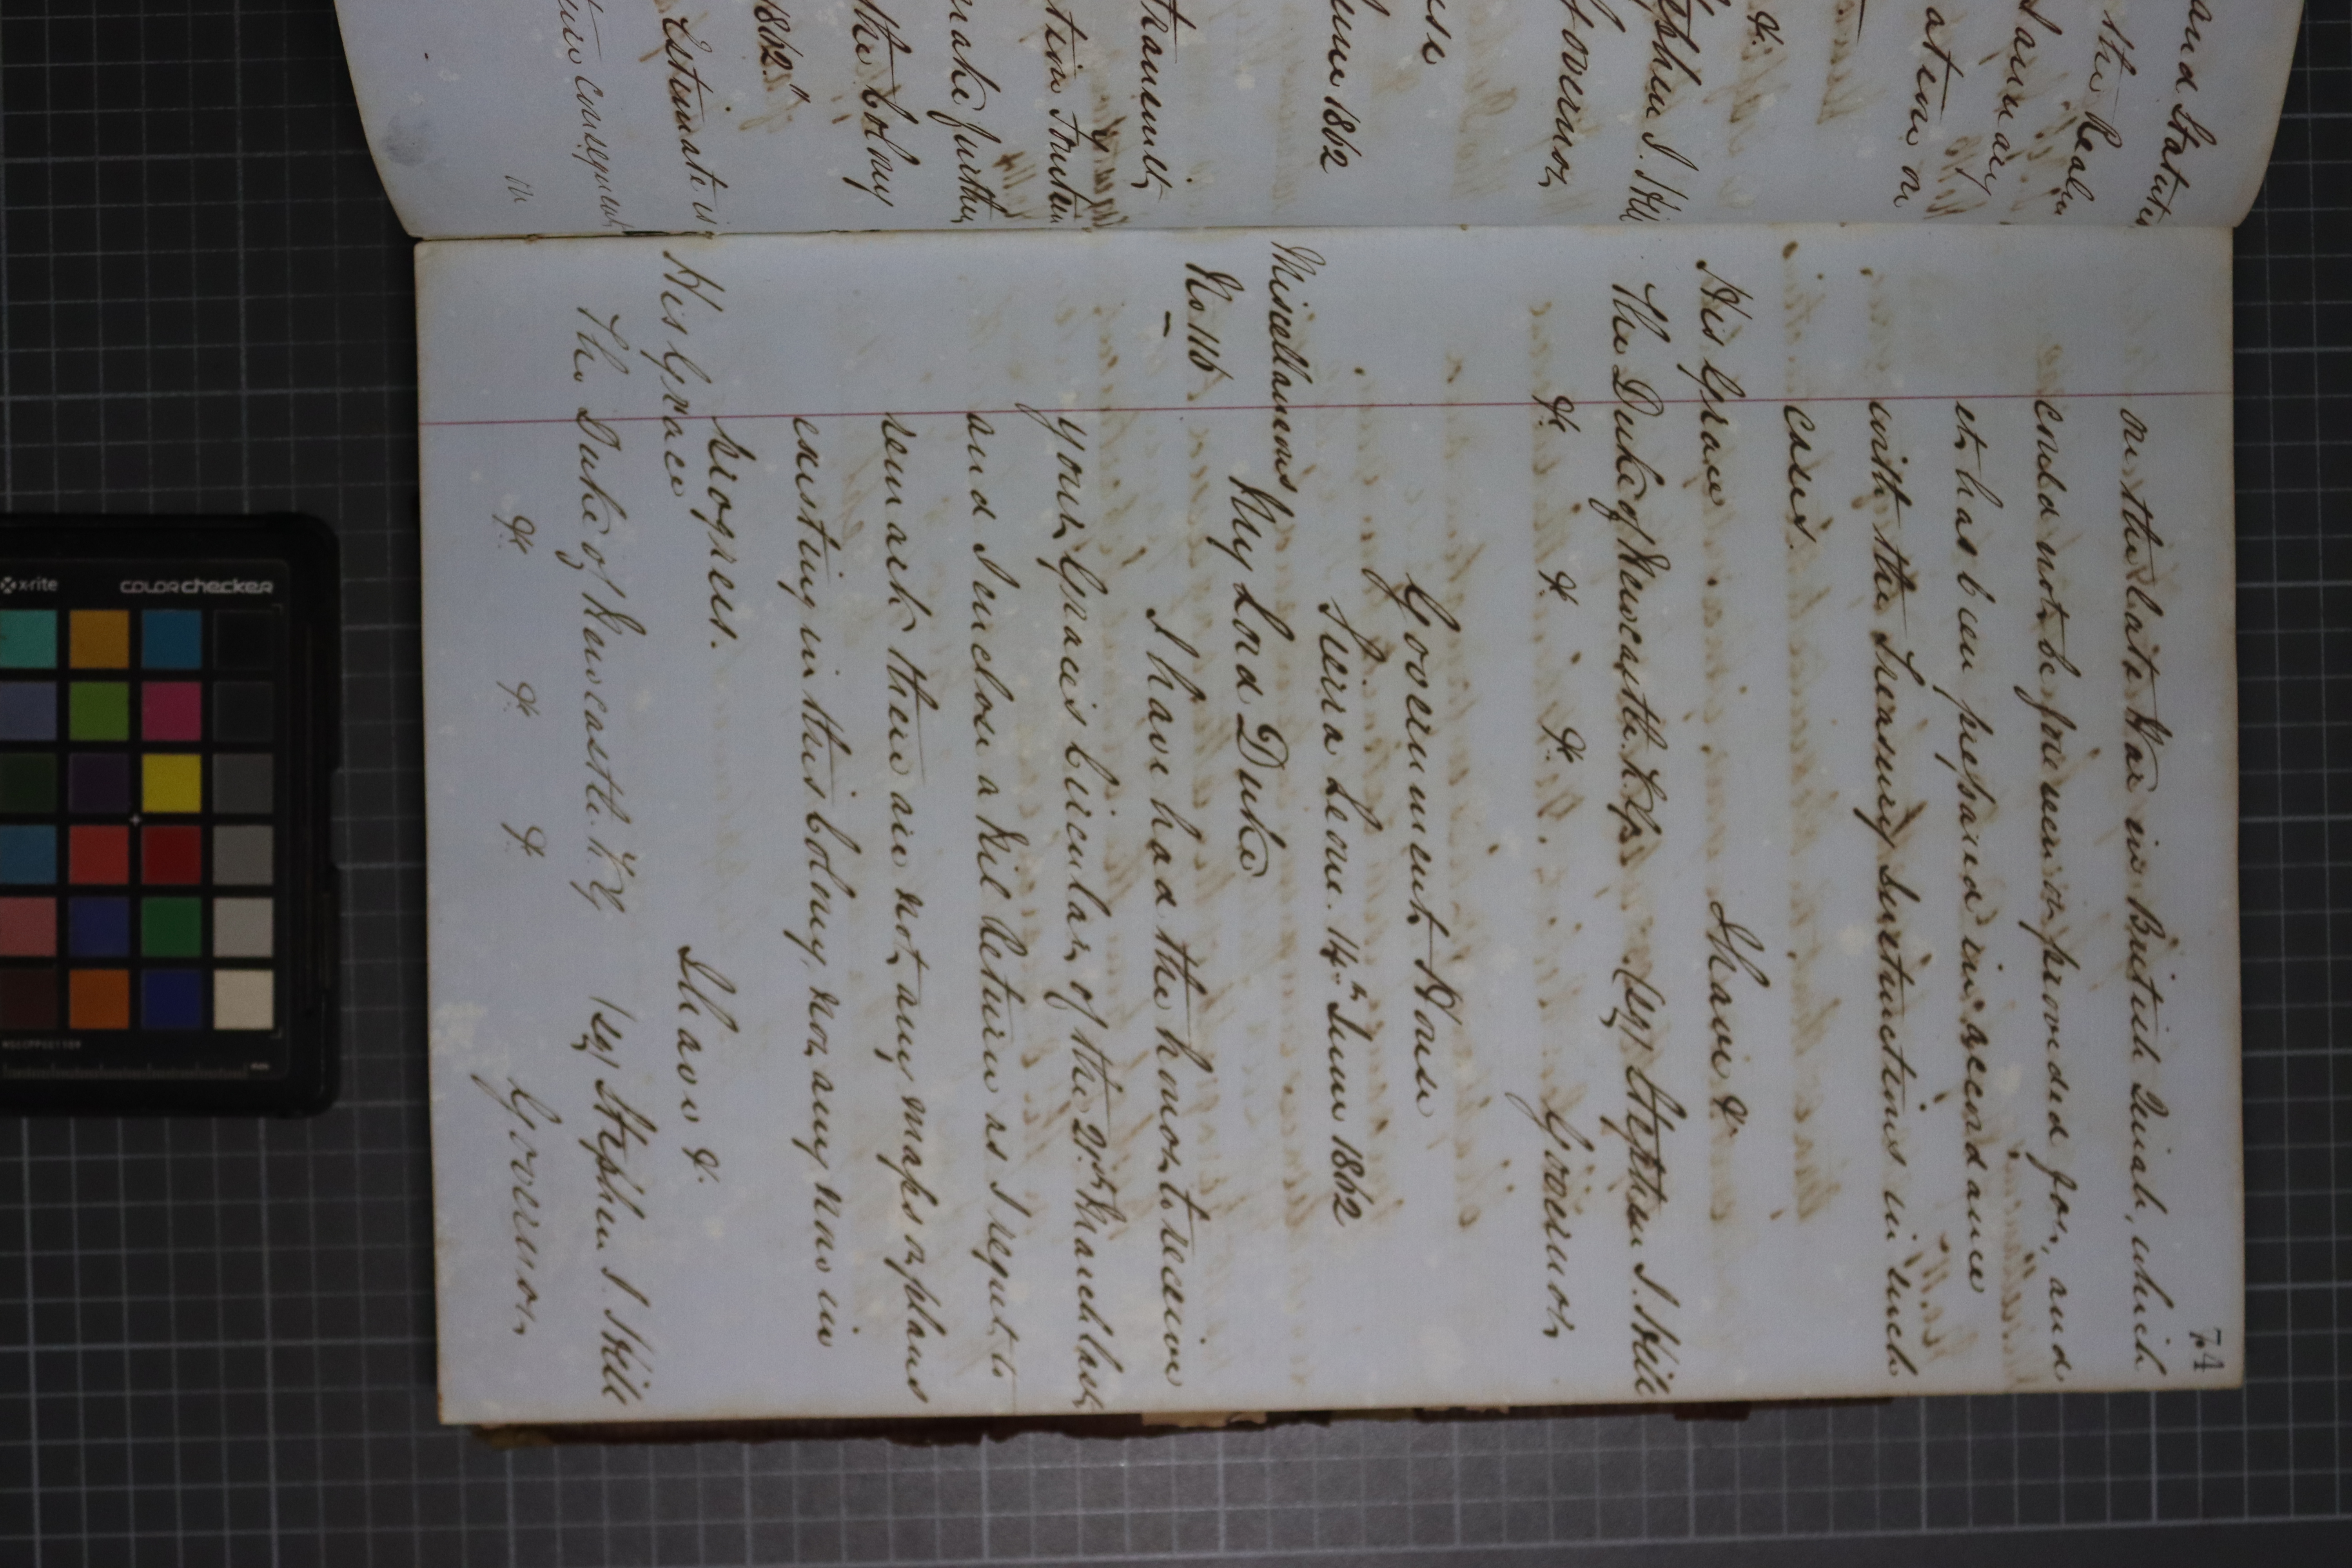 and Statutes
the Realm
I am any
ation on
&c
Stephen J. Hill
Governor
use
June 1862
transmit,
make further
the Colony
1862."
Estimate is
ture consequent
74
on the late War in British Quiah, which
could not be foreseen or provided for, and
it has been prepared in accordance
with the Treasury Instructions in such
cases.
I have &c
His Grace
The Duke of Newcastle K.G. (sg) Stephen J. Hill
&c &c &c Governor
Government House
Sierra Leone. 14th June 1862
Miscellaneous
No 116
My Lord Duke
I have had the honor to receive
your Grace's Circular of the 21st March last
and I enclose a Nil Return as I regret to
remark there are not any maps or plans
existing in this Colony, nor any now in
progress.
I have &c
His Grace
The Duke of Newcastle K.G. (sg) Stephen J. Hill
&c &c &c Governor
x-rite colorchecker